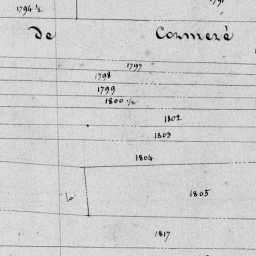 1794 ½
De Cormeré
1797
1798
1799
1800 ½
1802
1803
1804
1805
1817